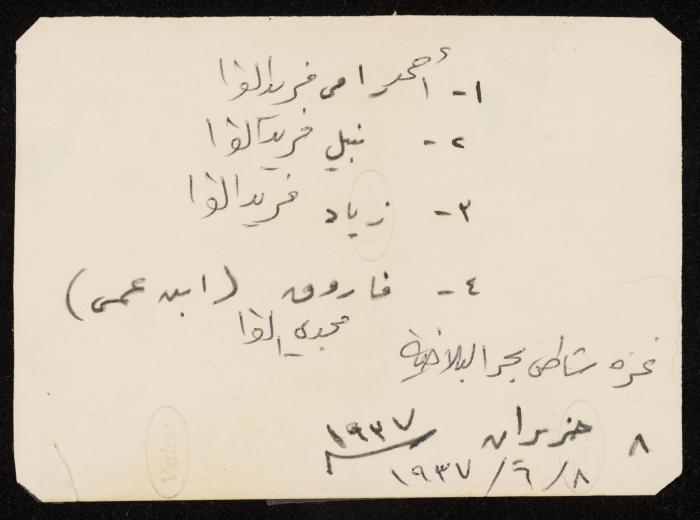 ١- أحمد رامي فريد الفرا
٢- نبيل فريد الفرا
٣- زياد فريد الفرا
٤- فاروق (ابن عمي)
مجدي الفرا
غزه شاطئ بحر البلاخية
٨ حزيران ١٩٣٧
٨/٦/١٩٣٧
Velox